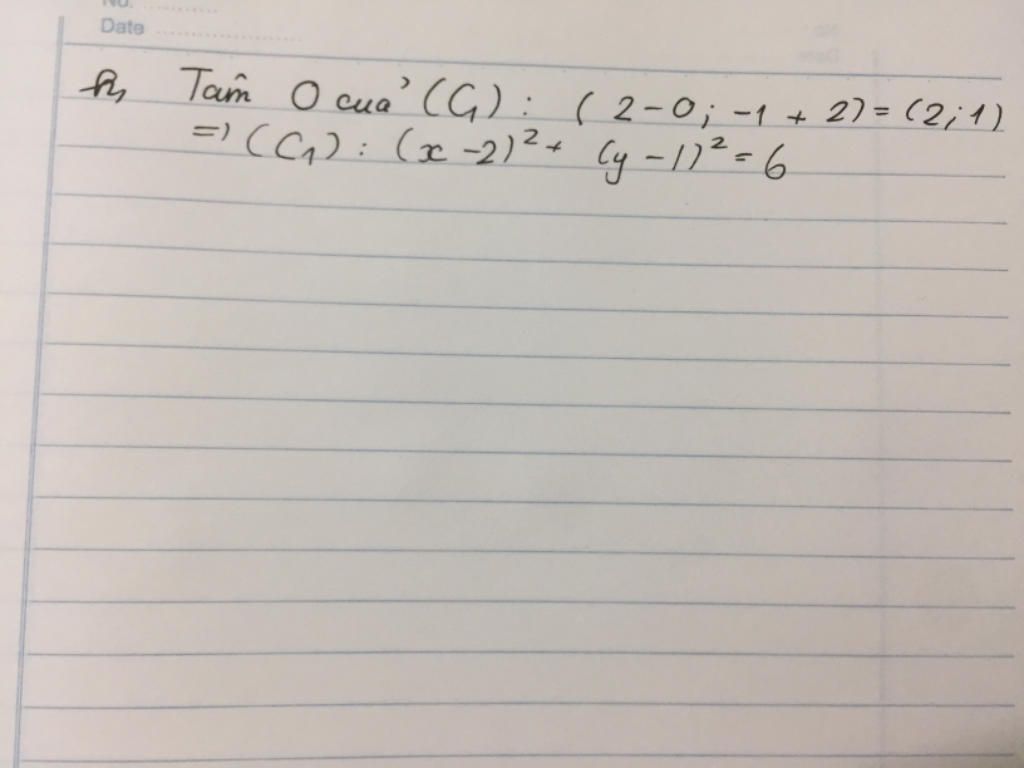 No. ............
Date ........................
b, Tâm O của (C₁) : ( 2 - 0 ; -1 + 2) = (2 ; 1)
=> (C₁) : (x - 2)² + (y - 1)² = 6